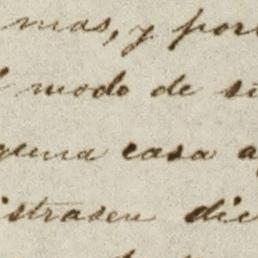 mas, y por
modo de si
guna casa a
istrasen dic